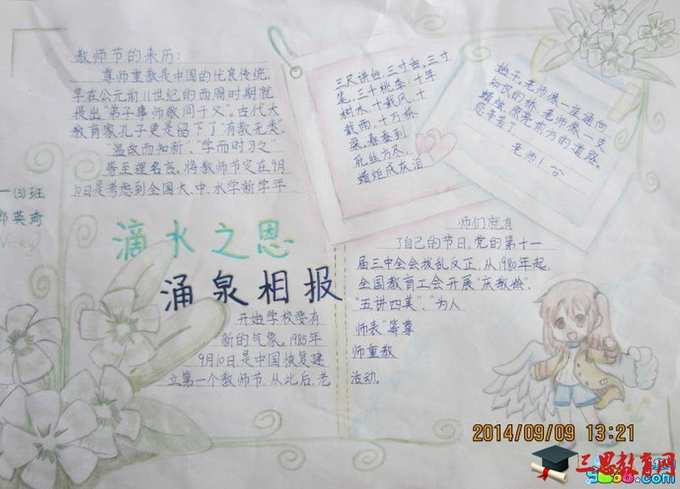 教师节的来历:
尊师重教是中国的优良传统,
早在公元前11世纪的西周时期就
提出"弟子事师敬同于父"。古代大
教育家孔子更是留下了"有教无类"、
"温故而知新"、"学而时习之"
等至理名言。将教师节定在9月
10日是考虑到全国大、中、小学新学年
三尺讲台,三寸舌,三寸
笔,三千桃李,十年
树木,十载风,十
载雨,十万栋
梁,春蚕到
死丝方尽,
蜡炬成灰泪
(3)班
滴水之恩
涌泉相报
开始学校要有
新的气象。1985年
9月10日是中国恢复建
立第一个教师节,从此后,老
师们便有
了自己的节日,党的第十一
届三中全会拨乱反正,从1980年起,
全国教育工会开展
"五讲四美"、"为人
师表"等尊
师重教
活动。
2014/09/09 13:21
三思教育网